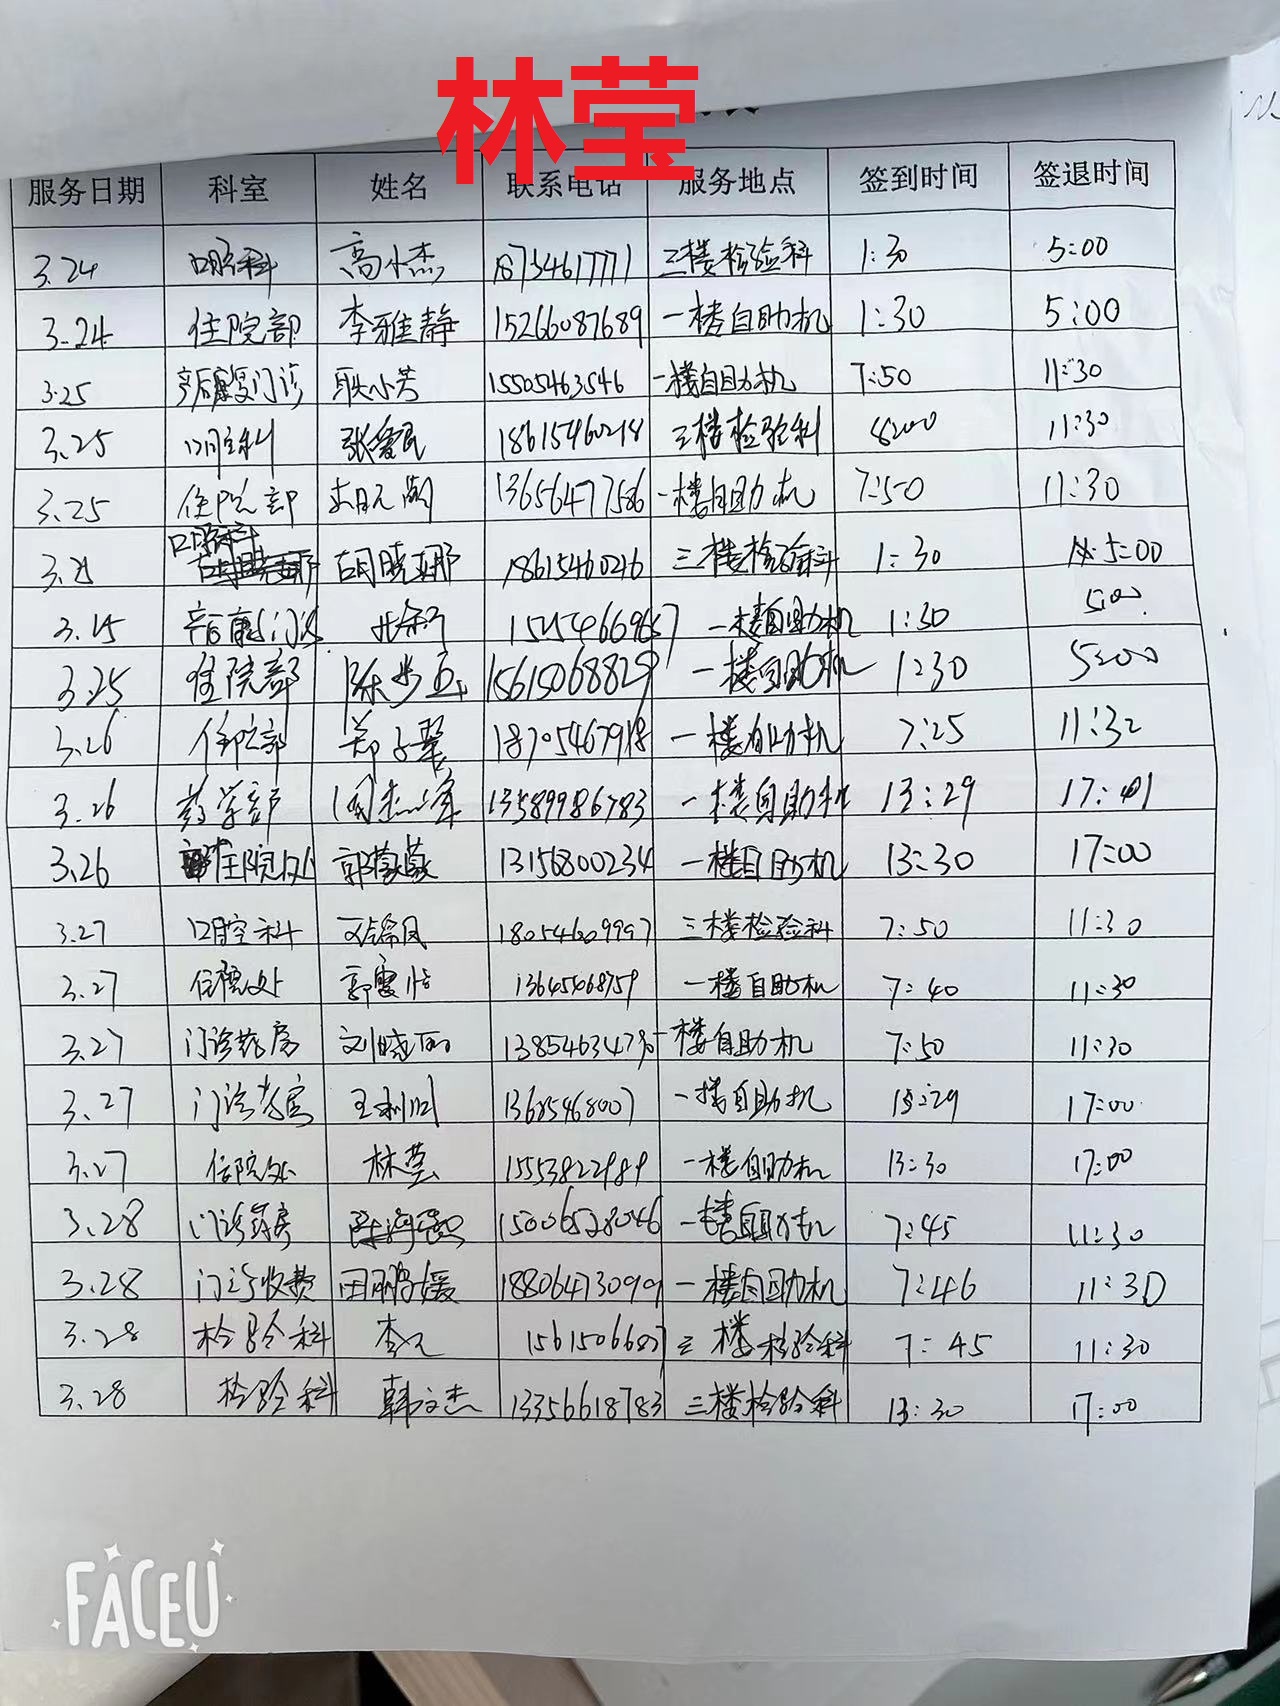 林莹
服务日期 科室 姓名 联系电话 服务地点 签到时间 签退时间
3.24 口腔科 高小杰 18734617771 三楼检验科 1:30 5:00
3.24 住院部 李雅静 15266087689 一楼自助机 1:30 5:00
3.25 产后康复门诊 耿小芳 15505463546 一楼自助机 7:50 11:30
3.25 口腔科 张爱民 18615460218 三楼检验科 8:00 11:30
3.25 住院部 13656477586 一楼自助机 7:50 11:30
口腔科
3.25 胡晓娜 18615460246 三楼检验科 1:30 5:00
3.25 一楼自助机 1:30 5:00
3.25 住院部 陈步玉 15615068829 一楼自助机 1:30 5:00
3.26 住院部 郑子翠 18705467918 一楼自助机 7:25 11:32
3.26 药学部 周杰峰 13589986783 一楼自助机 13:29 17:01
3.26 住院处 郭蒙蒙 13156800234 一楼自助机 13:30 17:00
3.27 口腔科 18054609997 三楼检验科 7:50 11:30
3.27 住院处 郭雪怡 13645468759 一楼自助机 7:40 11:30
3.27 门诊药房 刘晓丽 一楼自助机 7:50 11:30
3.27 门诊药房 王利明 一楼自助机 13:29 17:00
3.27 住院处 林莹 15553822989 一楼自助机 13:30 17:00
3.28 门诊药房 15006528046 一楼自助机 7:45 11:30
3.28 门诊收费 田鹏媛 18806473099 一楼自助机 7:46 11:30
3.28 检验科 三楼检验科 7:45 11:30
3.28 检验科 韩文杰 13356618783 三楼检验科 13:30 17:00
FACEU